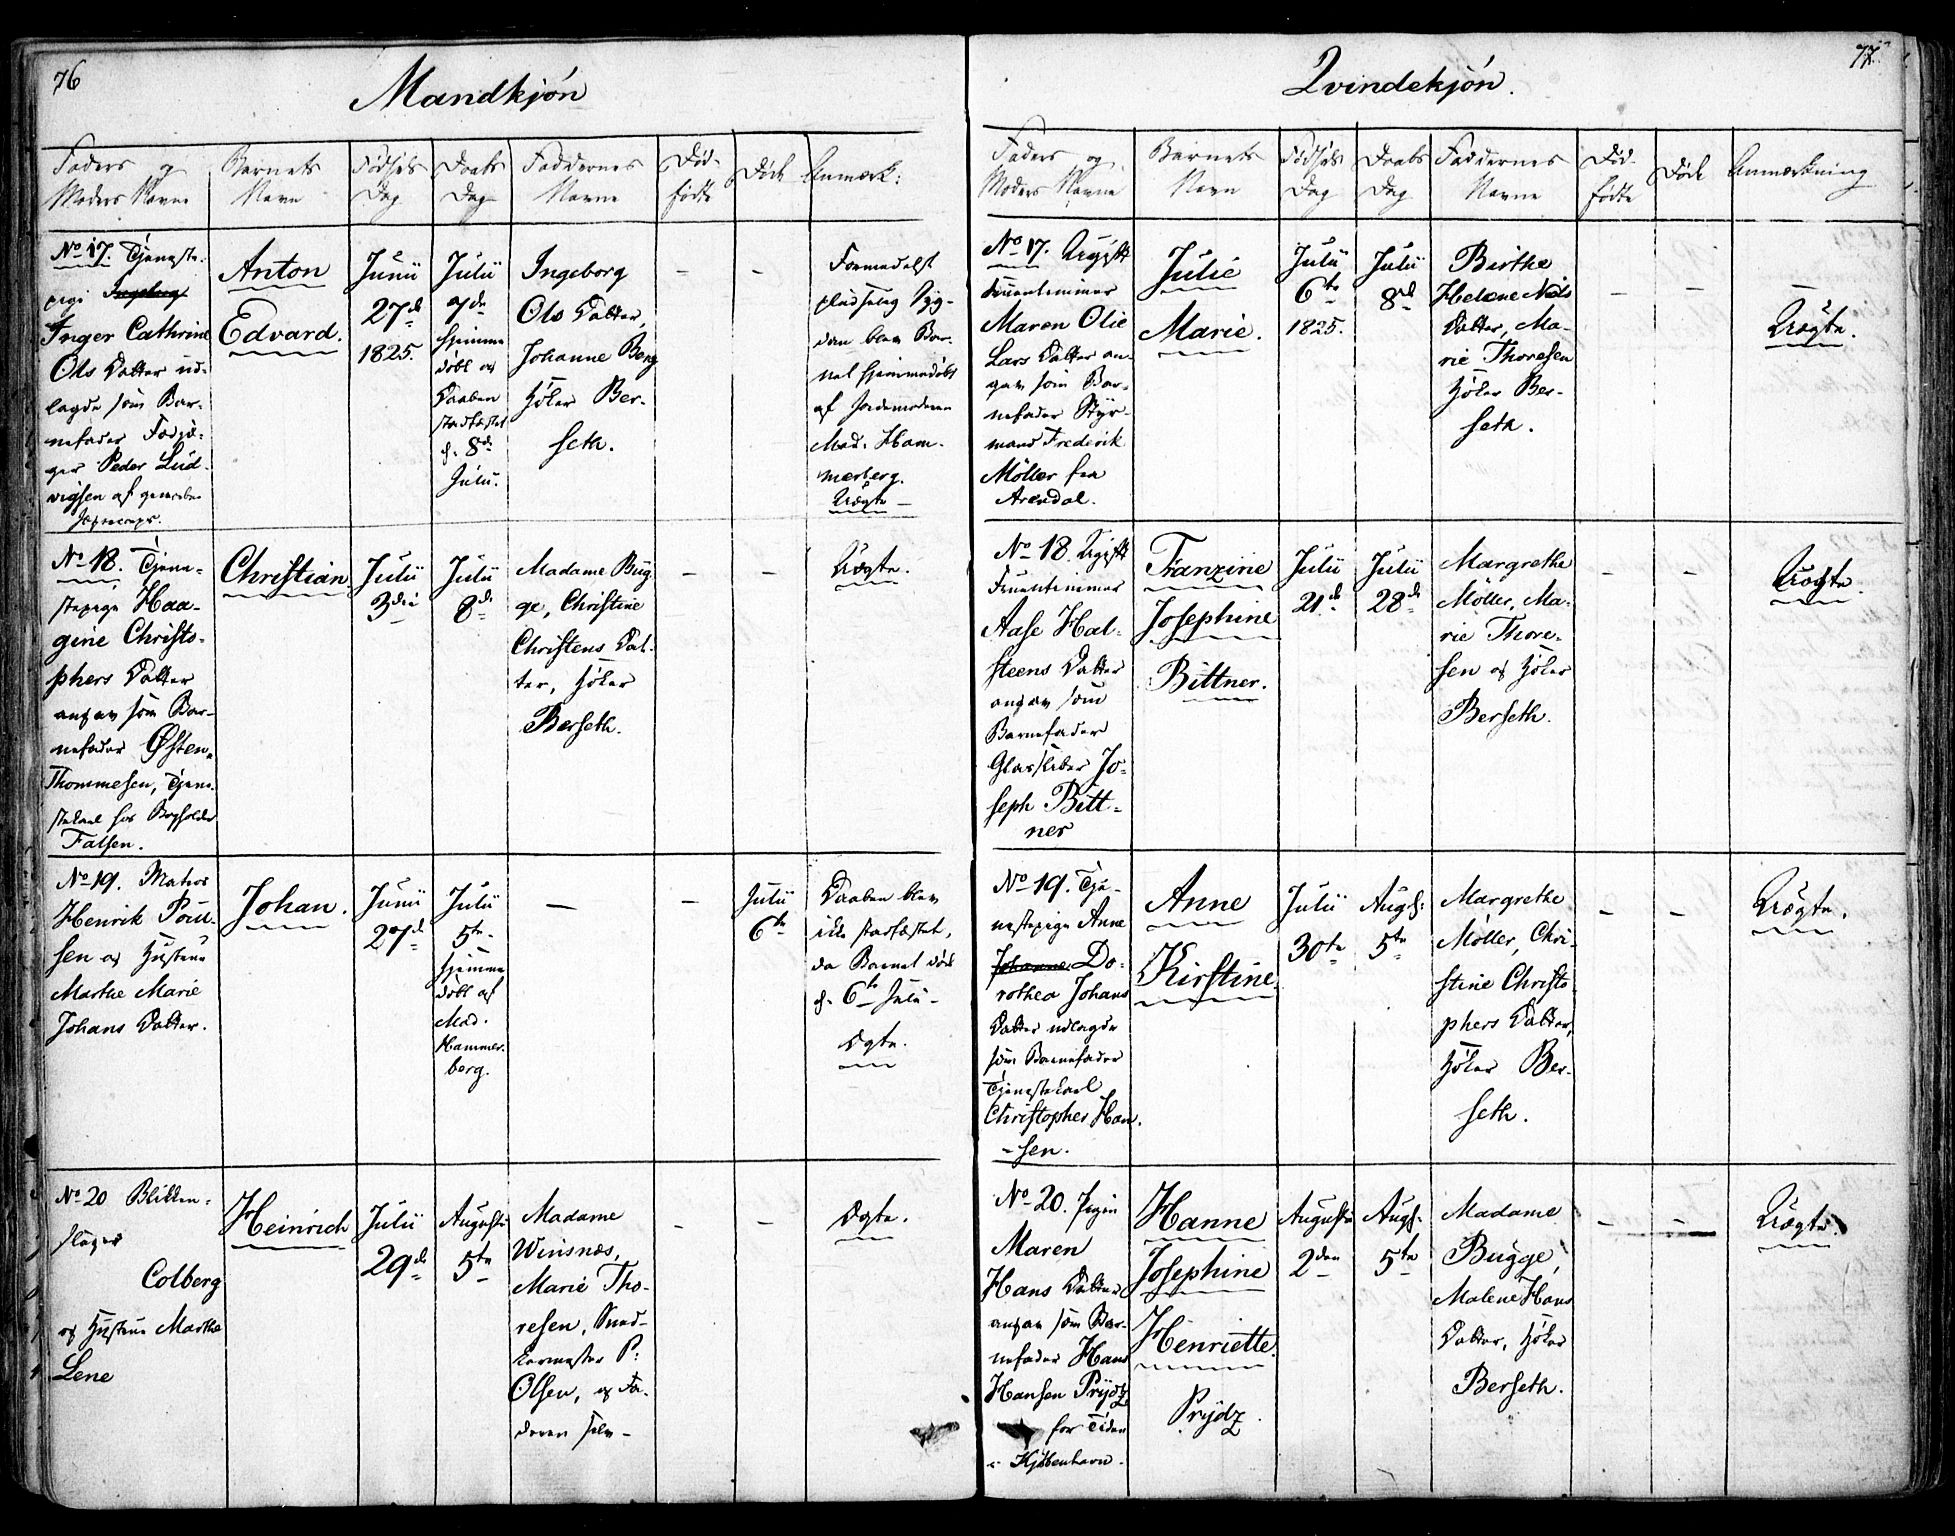 76
Mandkjøn
Faders og
Moders Navne
Barnets
Navn
Fødsels
Dag
Daabs
Dag
Faddernes
Navne
Død-
fødte
Døde
Anmærk:
No 17. Tjeneste-
pige Ingeborg
Inger Cathrine
Ols Datter ud-
lagde som Bar-
nefader
Peder Lud-
vigsen af
Anton
Edvard.
Junii
27de
1825.
Julii
7de
hjemme
døbt og
Daaben
stadfæstet
d. 8de
Julii.
Ingeborg
Ols Datter,
Johanne Berg
Høker Ber-
seth.
–
–
Formedelst
pludselig Syg-
dom blev Bar-
net hjemmedøbt
af Jordemoderen
Mad. Ham-
merberg.
Uægte –
No 18. Tjene-
stepige Haa-
gine Christo-
phers Datter
angav som Bar-
nefader Østen
Thommesen, Tjene-
stekarl hos Bogholder
Falsen.
Christian
Julii
3die
Julii
8de
Madame Bug-
ge, Christine
Christens Dat-
ter, Høker
Berseth.
–
–
Uægte.
No 19. Matros
Henrik Poul-
sen og Hustrue
Marthe Marie
Johans Datter.
Johan.
Junii
27de
Julii
5te
hjemme
døbt af
Mad.
Hammer-
berg.
–
–
Julii
6te
Daaben blev
ikke stadfæstet,
da Barnet døde
d. 6te Julii –
Ægte.
No 20 Blikken-
slager
Colberg
og Hustrue Marthe
Lene
Heinrich
Julii
29de
Augusti
5te
Madame
Winsnæs,
Marie Tho-
resen, Sned-
kermester P:
Olsen, og Fa-
deren selv –
–
–
Ægte.
77.
Qvindekjøn.
Faders og
Moders Navne
Barnets
Navn
Fødsels
Dag
Daabs
Dag
Faddernes
Navne
Død-
fødte
Døde
Anmærkning
No 17. Ugift
Fruentimmer
Maren Olie
Lars Datter an-
gav som Bar-
nefader Styr-
mand Frederik
Møller fra
Arendal.
Julie
Marie.
Julii
6te
1825.
Julii
8de
Birthe
Helene Niels
Datter, Ma-
rie Thoresen
Høker Ber-
seth.
–
–
Uægte.
No 18. Ugift
Fruentimmer
Aase Hal-
steens Datter
angav som
Barnefader
Glassliber Jo-
seph Bitt-
ner
Franzine
Josephine
Bittner.
Julii
21de
Julii
28de
Margrethe
Møller, Ma-
rie Thore-
sen og Høker
Berseth.
–
–
Uægte.
No 19. Tje-
nestepige Anne
Johanne Do-
rothea Johans
Datter udlagde
som Barnefader
Tjenestekarl
Christopher Han-
sen.
Anne
Kirstine
Julii
30te
Augs:
5te
Margrethe
Møller, Chri-
stine Christo-
phers Datter,
Høker Ber-
seth.
–
–
Uægte.
No 20. Pigen
Maren
Hans Datter
angav som Bar-
nefader Hans
Hansen Prÿdz
for Tiden
i Kjøbenhavn.
Hanne
Josephine
Henriette.
Prÿdz.
Augusti
2den
Augs:
5te
Madame
Bugge,
Malene Hans
Datter, Høker
Berseth.
–
–
Uægte.